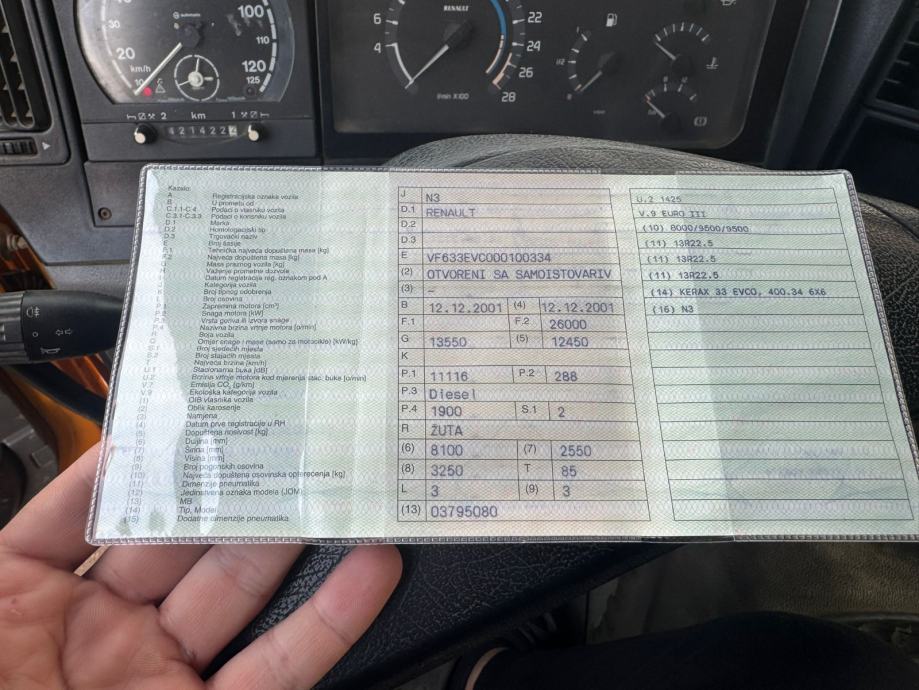 100
20
km/h
10
110
120
125
RENAULT
6
4
22
24
26
28
t/min X100
2
km
1
421422
Kazalo:
A Registracijska oznaka vozila
B U prometu od
C.1.1-C.4 Podaci o vlasniku vozila
C.3.1-C.3.3 Podaci o korisniku vozila
D.1 Marka
D.2 Homologacijski tip
D.3 Trgovački naziv
E Broj šasije
F.1 Tehnička najveća dopuštena masa [kg]
F.2 Najveća dopuštena masa [kg]
G Masa praznog vozila [kg]
H Važenje prometne dozvole
Datum registracije reg. oznakom pod A
J Kategorija vozila
K Broj tipnog odobrenja
L Broj osovina
P.1 Zapremina motora [cm³]
P.2 Snaga motora [kW]
P.3 Vrsta goriva ili izvora snage
P.4 Nazivna brzina vrtnje motora [o/min]
R Boja vozila
Omjer snage i mase (samo za motocikle) [kW/kg]
S.1 Broj sjedećih mjesta
S.2 Broj stajaćih mjesta
T Najveća brzina [km/h]
U.1 Stacionarna buka [dB]
U.2 Brzina vrtnje motora kod mjerenja stac. buke [o/min]
V.7 Emisija CO₂ [g/km]
V.9 Ekološka kategorija vozila
(1) OIB vlasnika vozila
(2) Oblik karoserije
(3) Namjena
(4) Datum prve registracije u RH
(5) Dopuštena nosivost [kg]
(6) Duljina [mm]
(7) Širina [mm]
(8) Visina [mm]
(9) Broj pogonskih osovina
(10) Najveća dopuštena osovinska opterećenja [kg]
(11) Dimenzije pneumatika
(12) Jedinstvena oznaka modela (JOM)
(13) MB
(14) Tip, Model
(15) Dodatne dimenzije pneumatika
J N3
D.1 RENAULT
D.2
D.3
E VF633EVC000100334
(2) OTVORENI SA SAMOISTOVARIV
(3) –
B 12.12.2001 (4) 12.12.2001
F.1 F.2 26000
G 13550 (5) 12450
K
P.1 11116 P.2 288
P.3 Diesel
P.4 1900 S.1 2
R ŽUTA
(6) 8100 (7) 2550
(8) 3250 T 85
L 3 (9) 3
(13) 03795080
U.2 1425
V.9 EURO III
(10) 8000/9500/9500
(11) 13R22.5
(11) 13R22.5
(11) 13R22.5
(14) KERAX 33 EVCO, 400.34 6X6
(16) N3